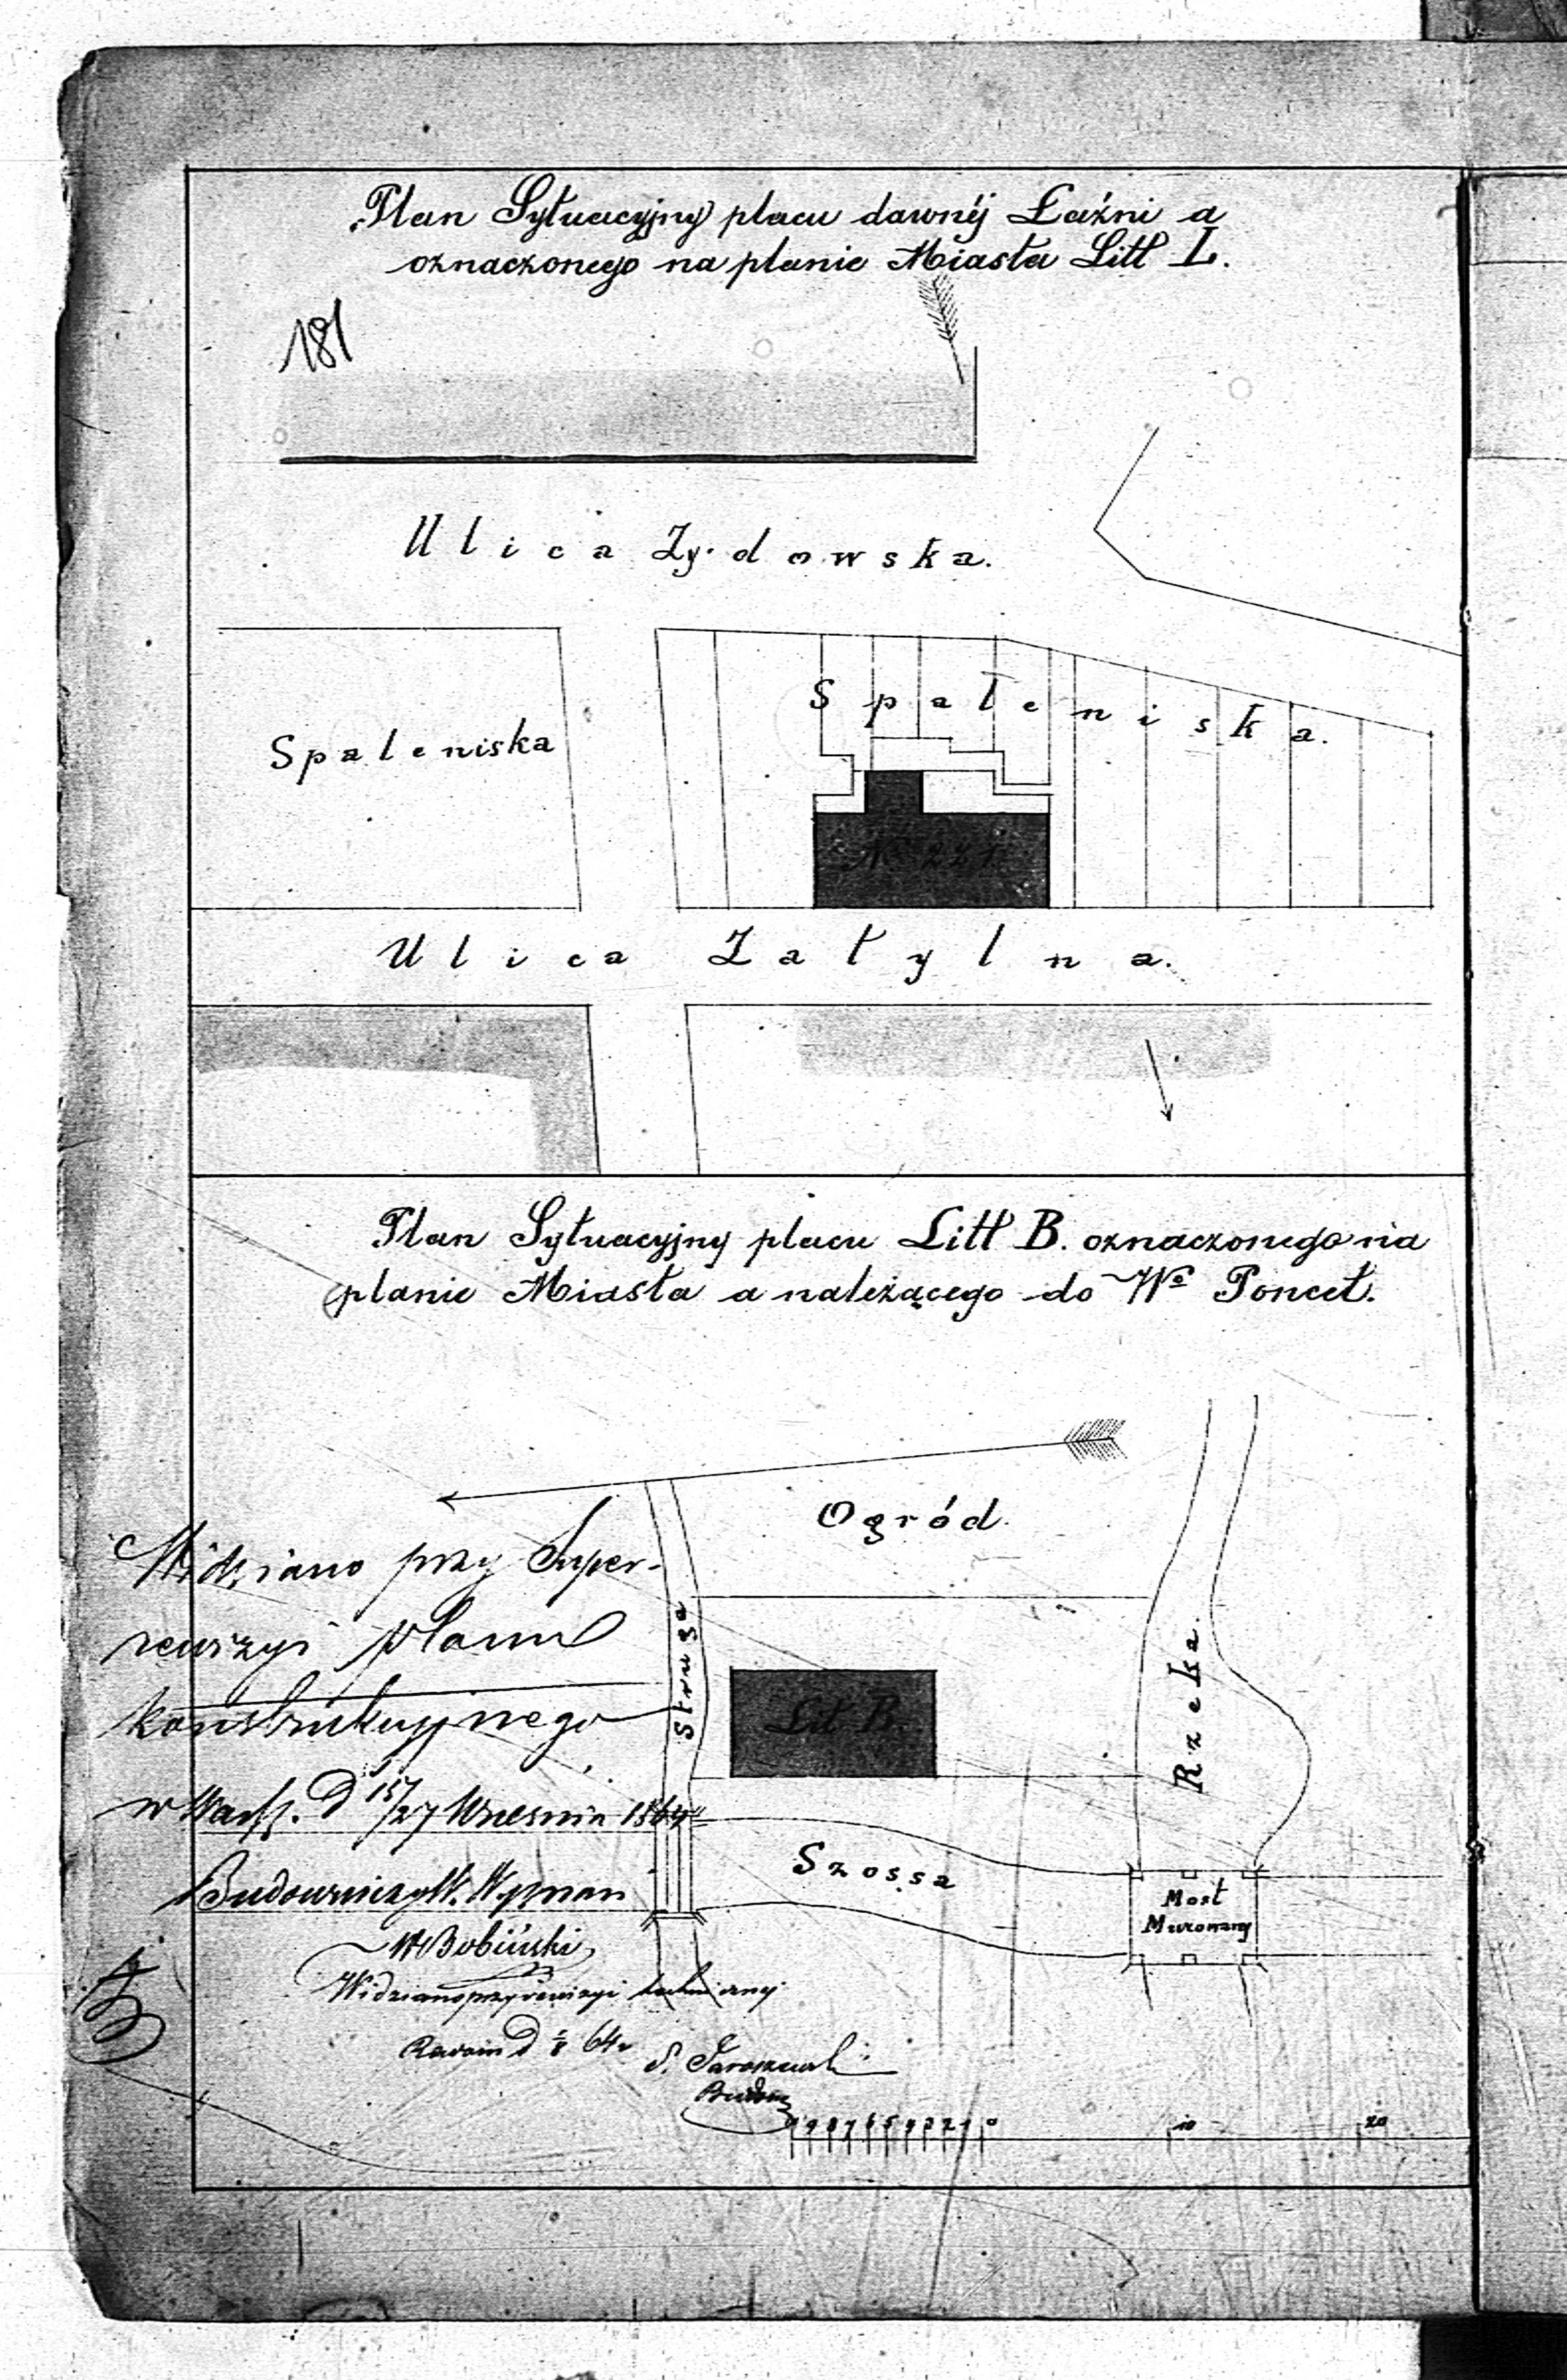 Plan Sytuacyjny placu dawnéj Łaźni a
oznaczonego na planie Miasta Litt L.
181
Ulica Żydowska.
Spaleniska
Spaleniska.
Ulica Zatylna.
Plan Sytuacyjny placu Litt B. oznaczonego na
planie Miasta a należącego do Wo Poncet.
Ogród.
Widziano przy Super-
rewizyi planu
konstrukcyjnego
w Warsz. D 15/27 Września 1864
Budowniczy
Struga
Lit B.
Rzeka.
Szossa
Most
Murowany
WBobiński
Widziano przy rewizyi technicznej
64
Budow
9 8 7 6 5 4 3 2 1 0 10 20